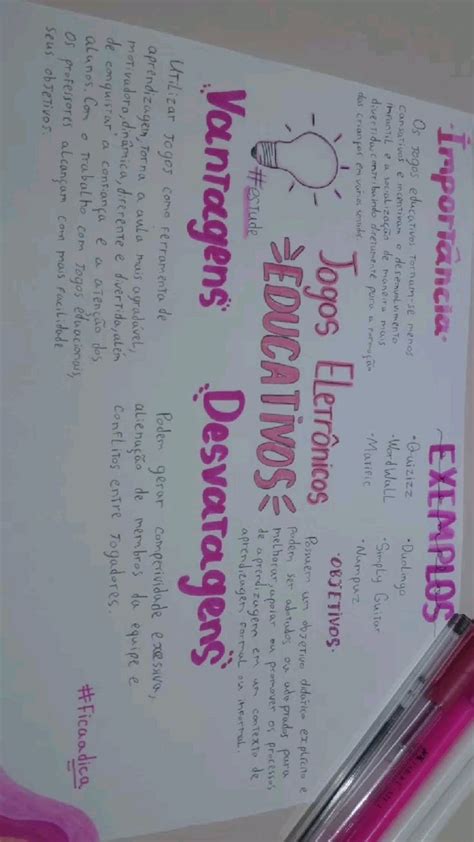 •Importância•
Os jogos educativos tornam-se menos
cansativos e incentivam o desenvolvimento
infantil e a socialização de maneira mais
divertida, contribuindo diretamente para a formação
das crianças em vários
EXEMPLOS
•Quizizz
•WordWall
•Matific
•Duolingo
•Simply Guitar
Jogos Eletrônicos
EDUCATIVOS
#estude
•OBJETIVOS•
Possuem um objetivo didático explícito e
podem ser adotados ou adaptados para
melhorar, apoiar ou promover os processos
de aprendizagem em um contexto de
aprendizagem formal ou informal.
Vantagens
Utilizar jogos como ferramenta de
aprendizagem, torna a aula mais agradável,
motivadora, dinâmica, diferente e divertida, além
de conquistar a confiança e a atenção dos
alunos. Com o trabalho com jogos educacionais,
os professores alcançam com mais facilidade
seus objetivos.
Desvatagens
Podem gerar
alienação de membros da equipe e
conflitos entre jogadores.
#Ficaadica